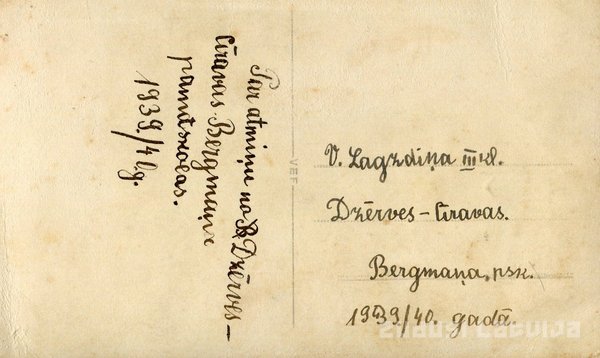 Par atmiņu no Dzērves-
Cīravas Bergmaņa
pamatskolas.
1939./40g.
VEF
V. Lagzdiņa III kl.
Dzērves-Cīravas.
Bergmaņa psk.
1939/40. gadā.
zudusi latvija